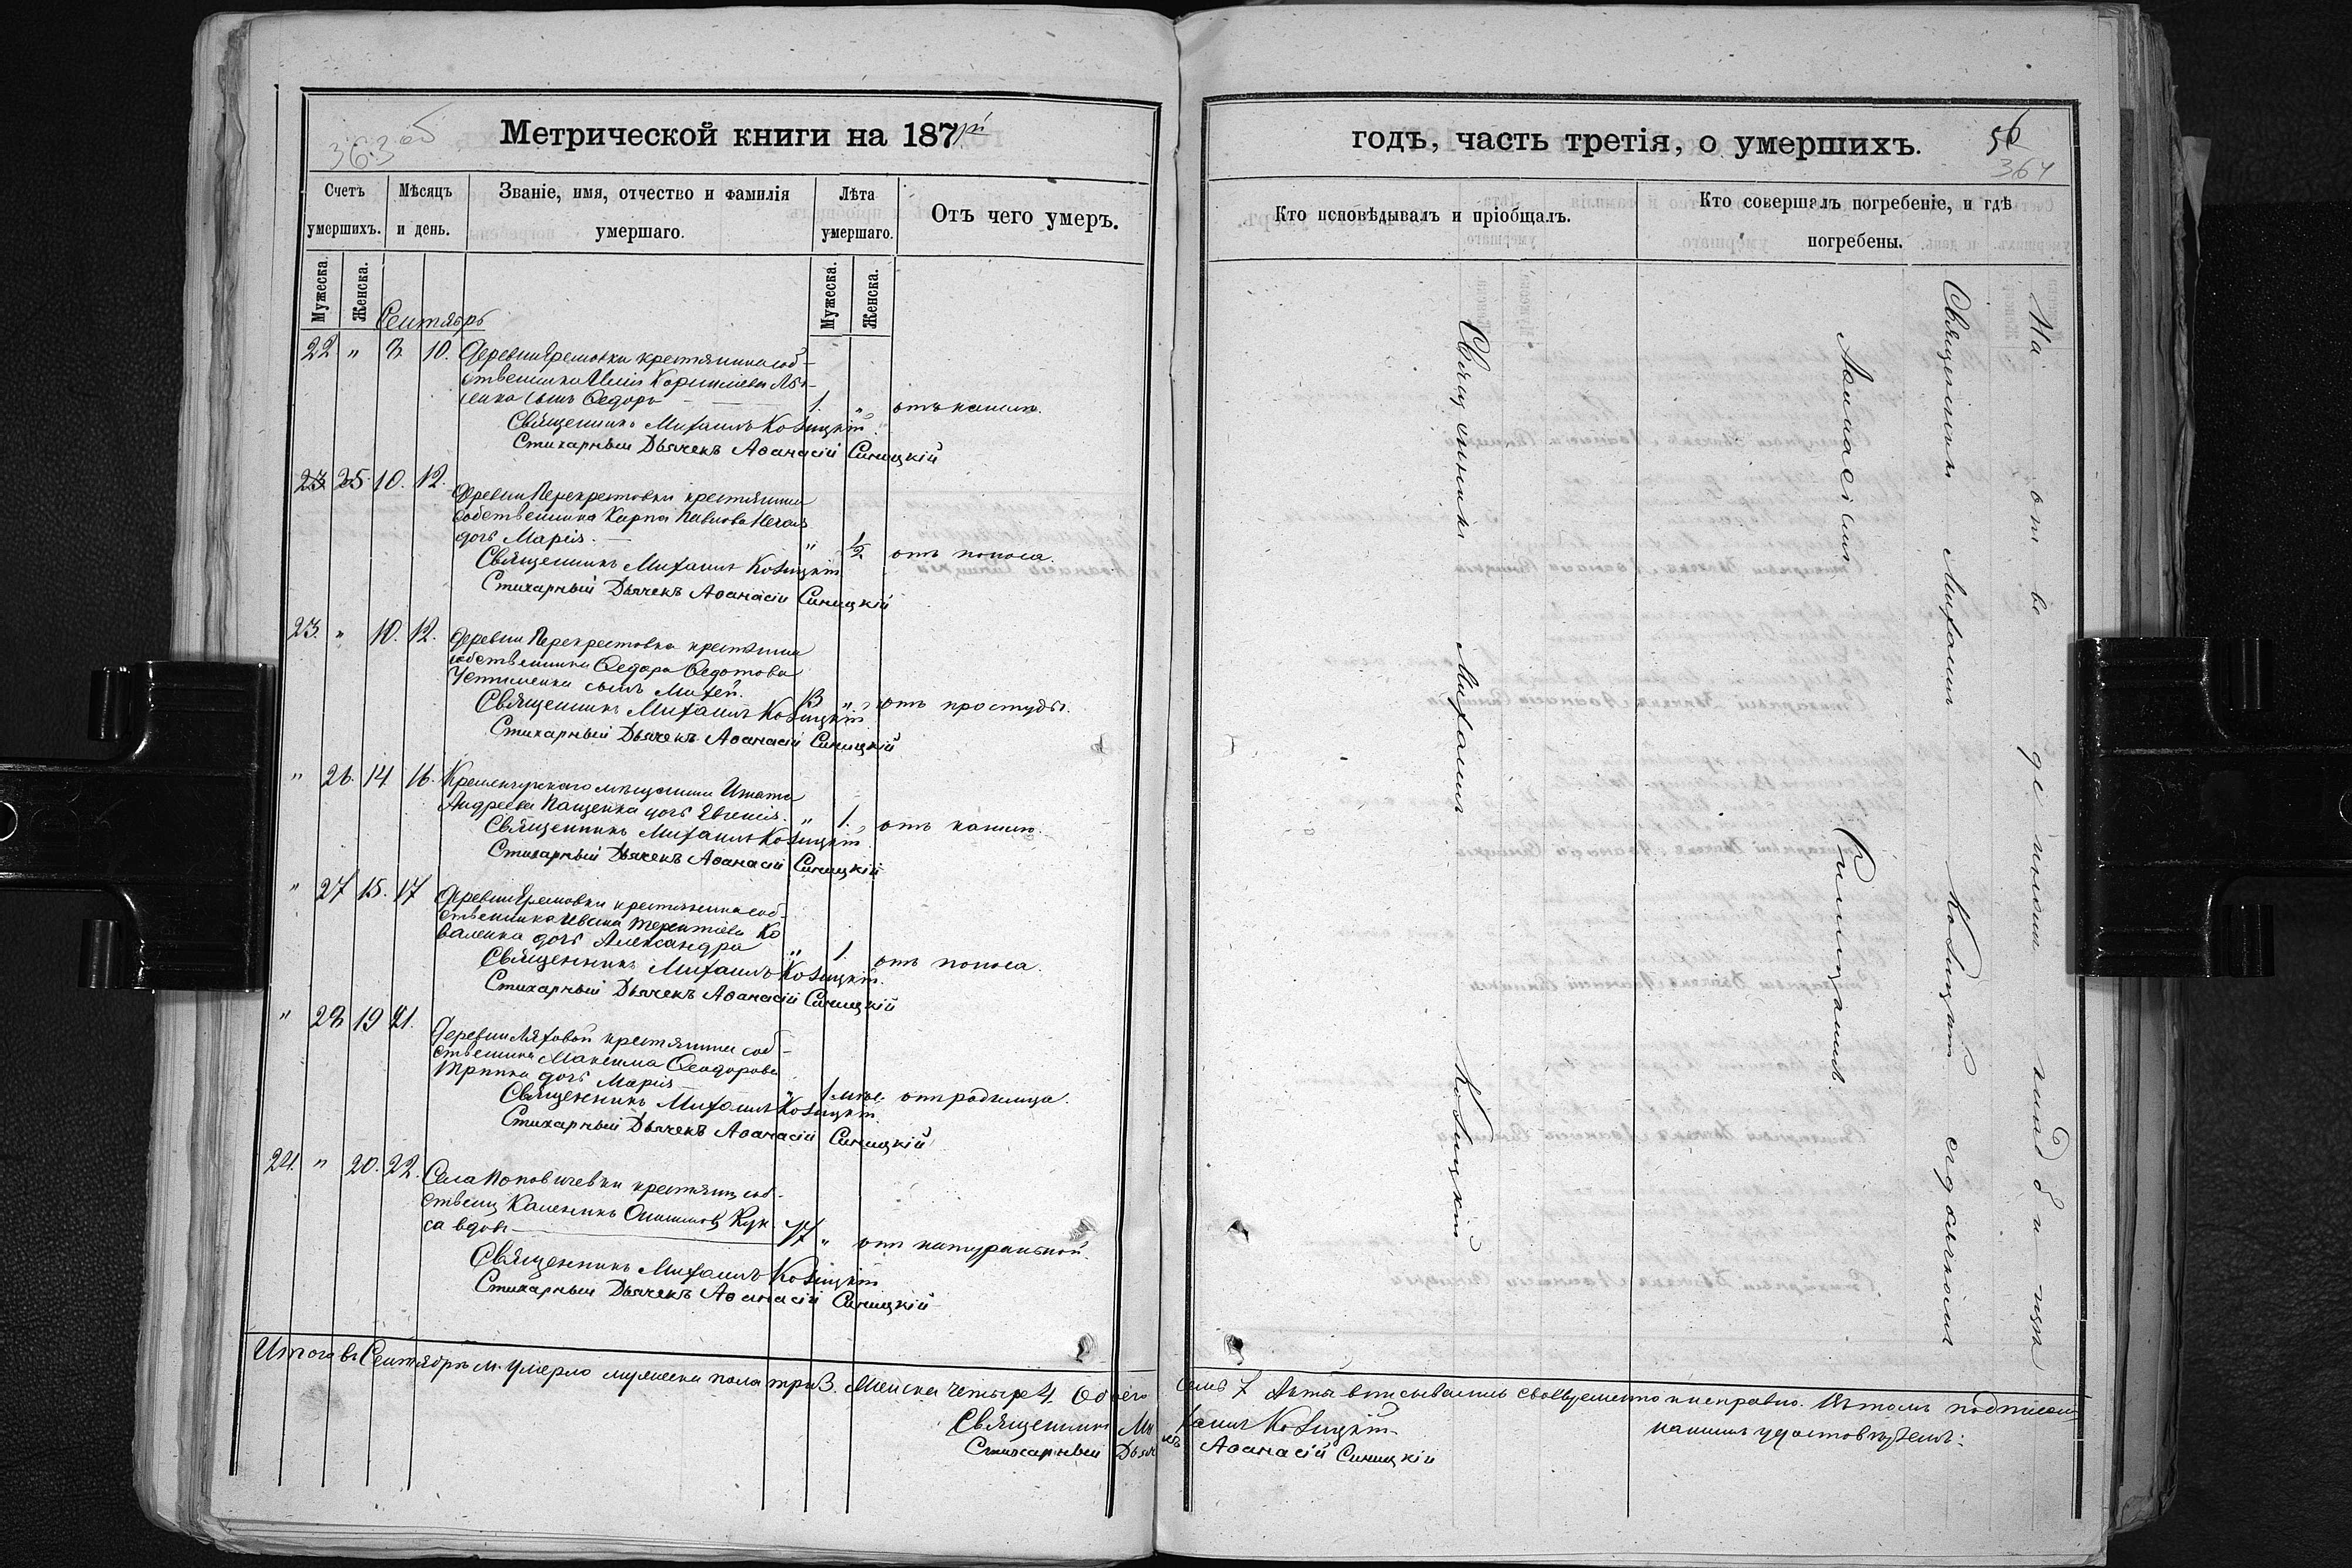 363 об
Метрической книги на 187
годъ, часть третія, о умершихъ.
56
364
Счетъ умершихъ.
Мѣсяцъ и день.
Званіе, имя, отчество и фамилія умершаго.
Лѣта умершаго.
Отъ чего умеръ.
Кто исповѣдывалъ и пріобщалъ.
Кто совершалъ погребеніе, и гдѣ погребены.
Мужеска.
Женска.
Мужеска.
Женска.
Сентябрь
22 " 8. 10. Деревни Яремовки крестянина соб-
ственника Корнилева
сынъ Ѳедоръ 1. " отъ кашлю.
Священникъ Михаилъ Козицкій
Стихарный Дьячекъ Аѳанасій Синицкій
23 25. 10. 12. Деревни Перекрестовки крестянина
собственника Карпа Павлова Нечая
дочь Марія. " 1/2 отъ поноса.
Священникъ Михаилъ Козицкій
Стихарный Дьячекъ Аѳанасій Синицкій
23. " 10. 12. Деревни Перекрестовка крестянина
собственника Ѳедора Ѳедотова
сынъ Михей. 13 " отъ простуды.
Священникъ Михаилъ Козицкій
Стихарный Дьячекъ Аѳанасій Синицкій
" 26. 14 16. Кременчугского мещанина Игната
Андреева Пащенка дочь Евгенія. " 1. отъ кашлю.
Священникъ Михаилъ Козицкій
Стихарный Дьячекъ Аѳанасій Синицкій
" 27 15. 17 Деревни Яремовки крестянина соб-
ственника Ивана Терентіева Ко
валенка дочь Александра " 1. отъ поноса.
Священникъ Михаилъ Козицкій.
Стихарный Дьячекъ Аѳанасій Синицкій
" 28 19 21. Деревни Ляховой крестянина соб-
ственника Максима Ѳеодорова
дочь Марія " 1 мѣс. отъ родимца.
Священникъ Михаилъ Козицкій
Стихарный Дьячекъ Аѳанасій Синицкій
24. " 20. 22. Села Поповичевки крестян. соб-
ственц Каленикъ Кук
са вдовъ 77 " отъ натуральной.
Священникъ Михаилъ Козицкій
Стихарный Дьячекъ Аѳанасій Синицкій
Священникъ Михаилъ Козицкій
Священникъ Михаилъ Козицкій съ дьячкомъ
Аѳанасіемъ Синицкимъ.
На кладбищѣ
Итого въ Сентябрѣ м. умерло мужеска пола три 3. Женска четыре 4. Обоего семь 7 Акты вписывались своевременно и исправно. Въ томъ подписомъ
Священникъ Михаилъ Козицкій нашимъ удостовѣряемъ:
Стихарный Дьячекъ Аѳанасій Синицкій